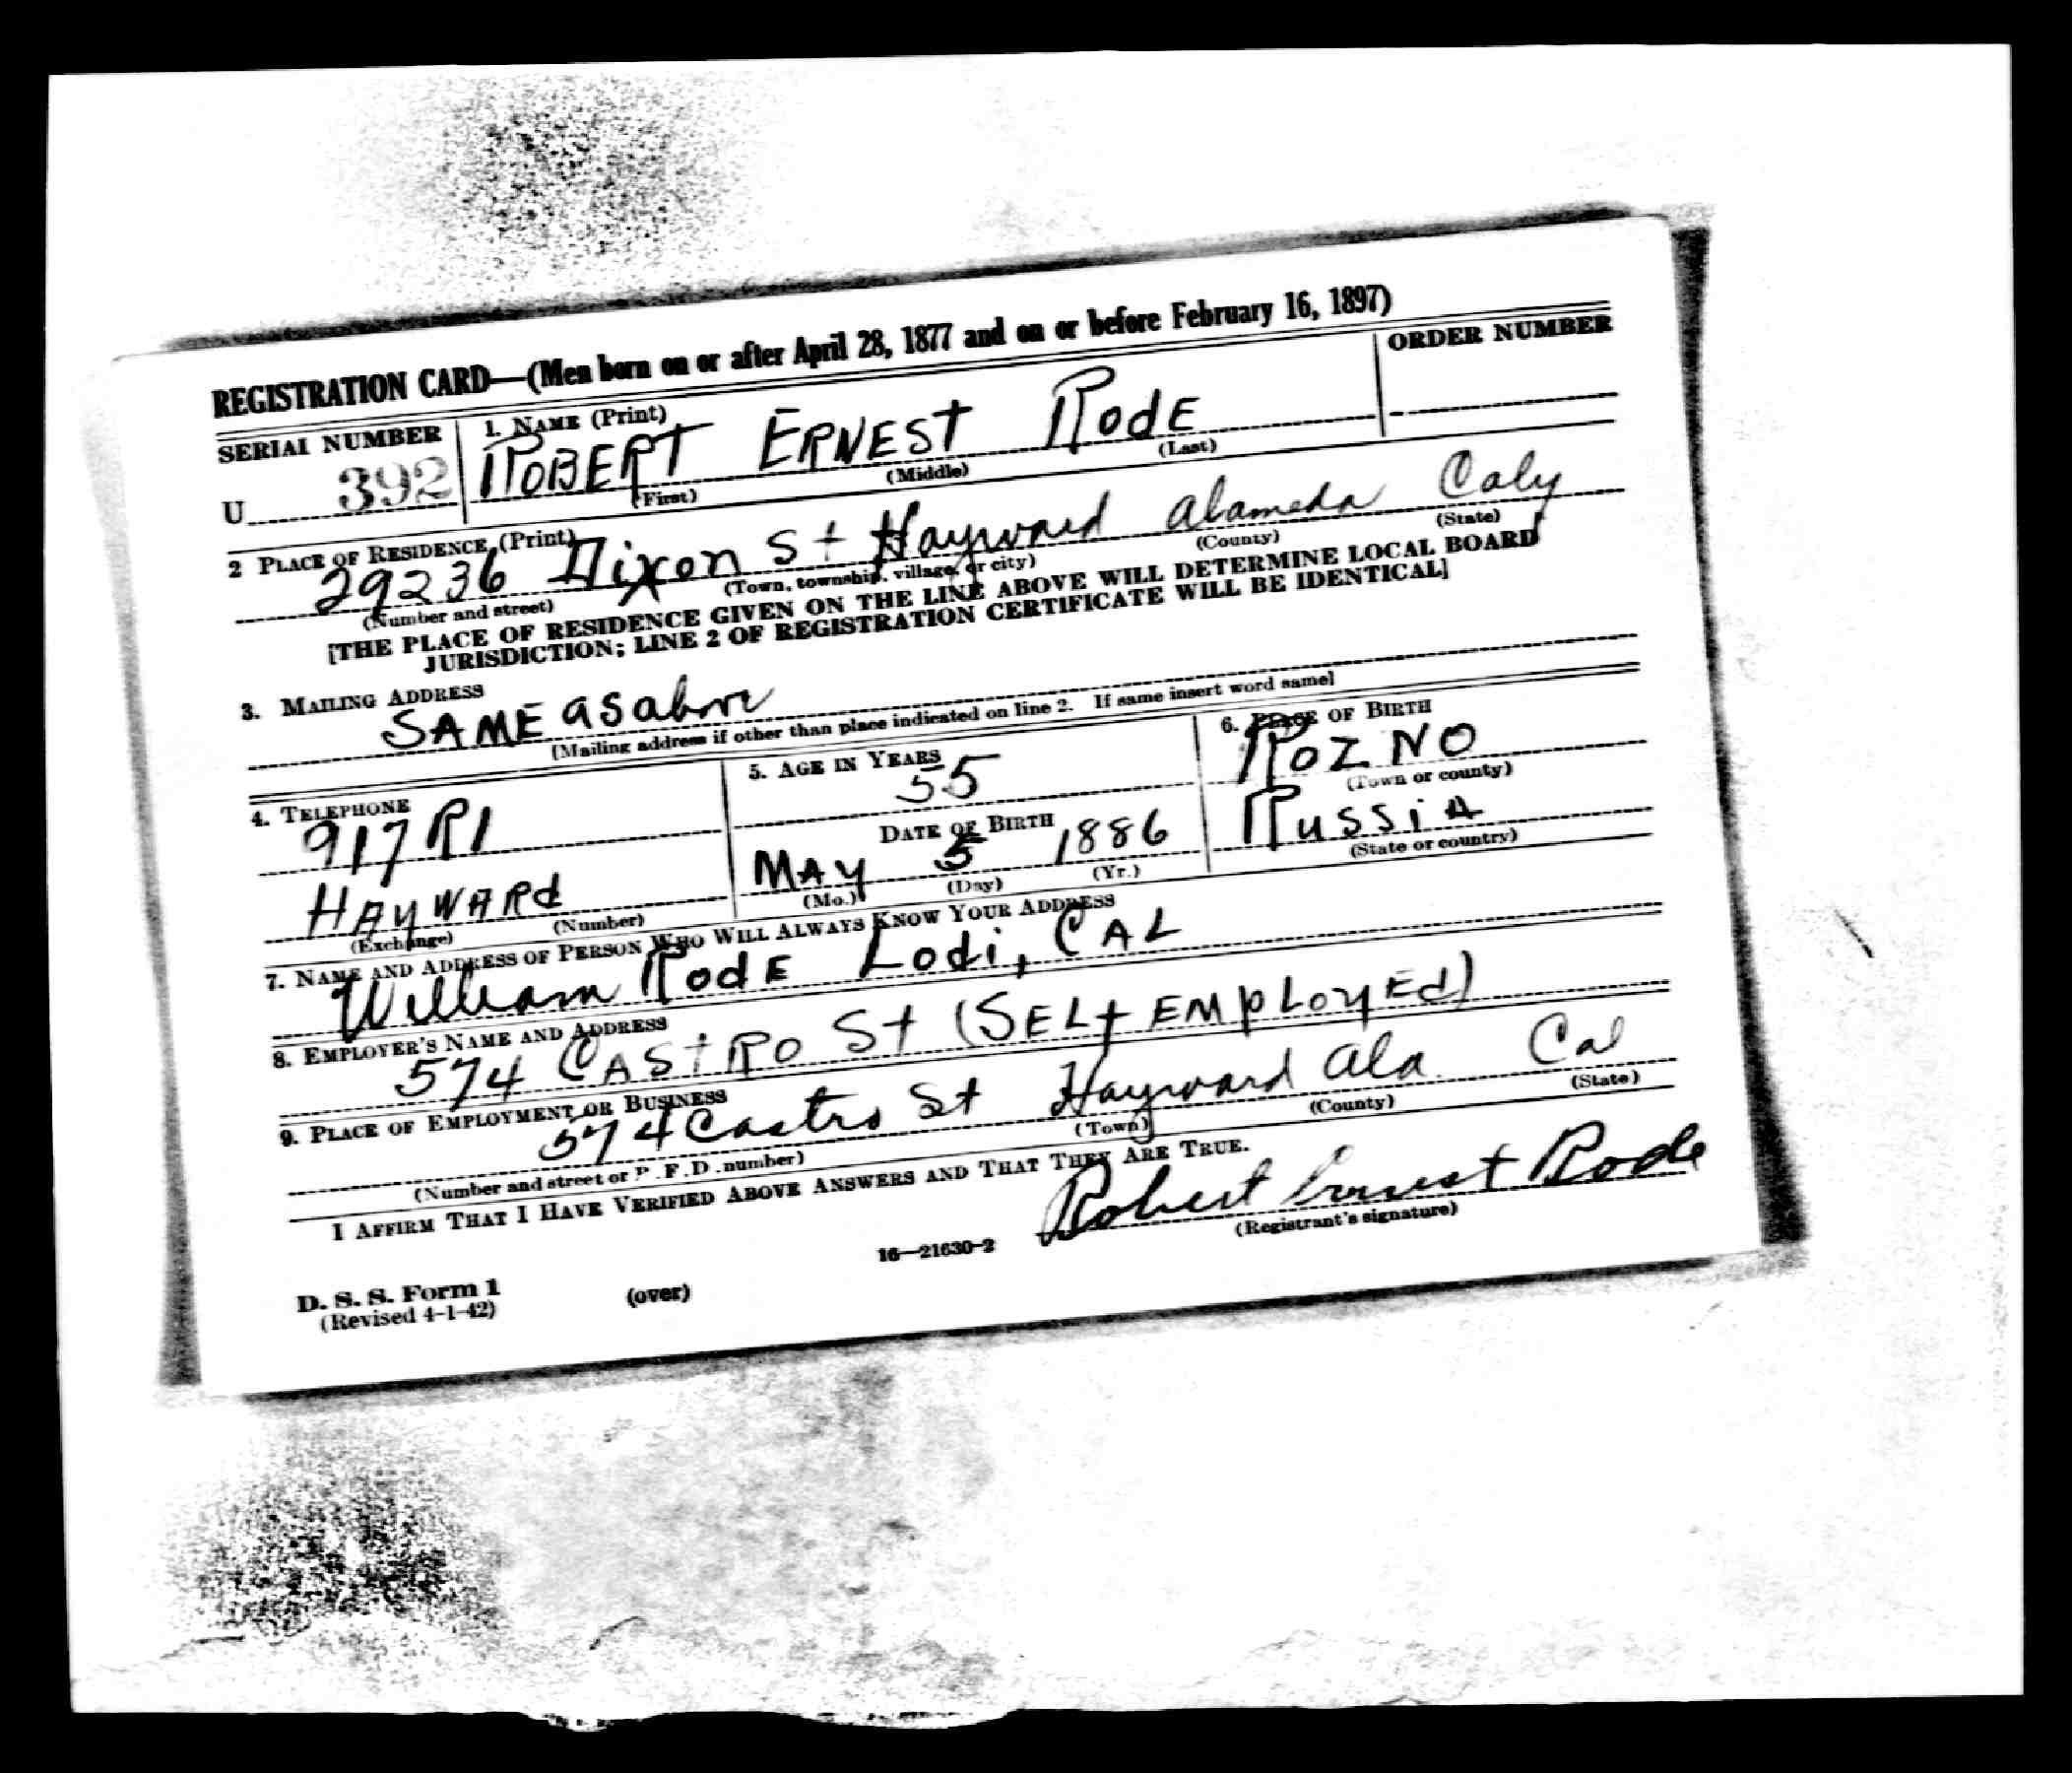 REGISTRATION CARD—(Men born on or after April 28, 1877 and on or before February 16, 1897)
SERIAL NUMBER
1. NAME (Print)
ORDER NUMBER
U 392
ROBERT ERNEST RODE
(First) (Middle) (Last)
2 PLACE OF RESIDENCE (Print)
29236 Dixon St Hayward Alameda Calif
(Number and street) (Town, township, village, or city) (County) (State)
[THE PLACE OF RESIDENCE GIVEN ON THE LINE ABOVE WILL DETERMINE LOCAL BOARD
JURISDICTION; LINE 2 OF REGISTRATION CERTIFICATE WILL BE IDENTICAL]
3. MAILING ADDRESS
SAME as above
[Mailing address if other than place indicated on line 2. If same insert word same]
4. TELEPHONE
917 R1
HAYWARd
(Exchange) (Number)
5. AGE IN YEARS
55
DATE OF BIRTH
MAY 5 1886
(Mo.) (Day) (Yr.)
6. PLACE OF BIRTH
ROZNO
(Town or county)
RussiA
(State or country)
7. NAME AND ADDRESS OF PERSON WHO WILL ALWAYS KNOW YOUR ADDRESS
William RodE Lodi, CAL
8. EMPLOYER'S NAME AND ADDRESS
574 CAStRO St (SELf EMpLoyEd)
9. PLACE OF EMPLOYMENT OR BUSINESS
574 Castro St Hayward Ala Cal
(Number and street or R. F. D. number) (Town) (County) (State)
I AFFIRM THAT I HAVE VERIFIED ABOVE ANSWERS AND THAT THEY ARE TRUE.
Robert Ernest Rode
(Registrant's signature)
D. S. S. Form 1
(Revised 4-1-42)
(over)
16—21630-2